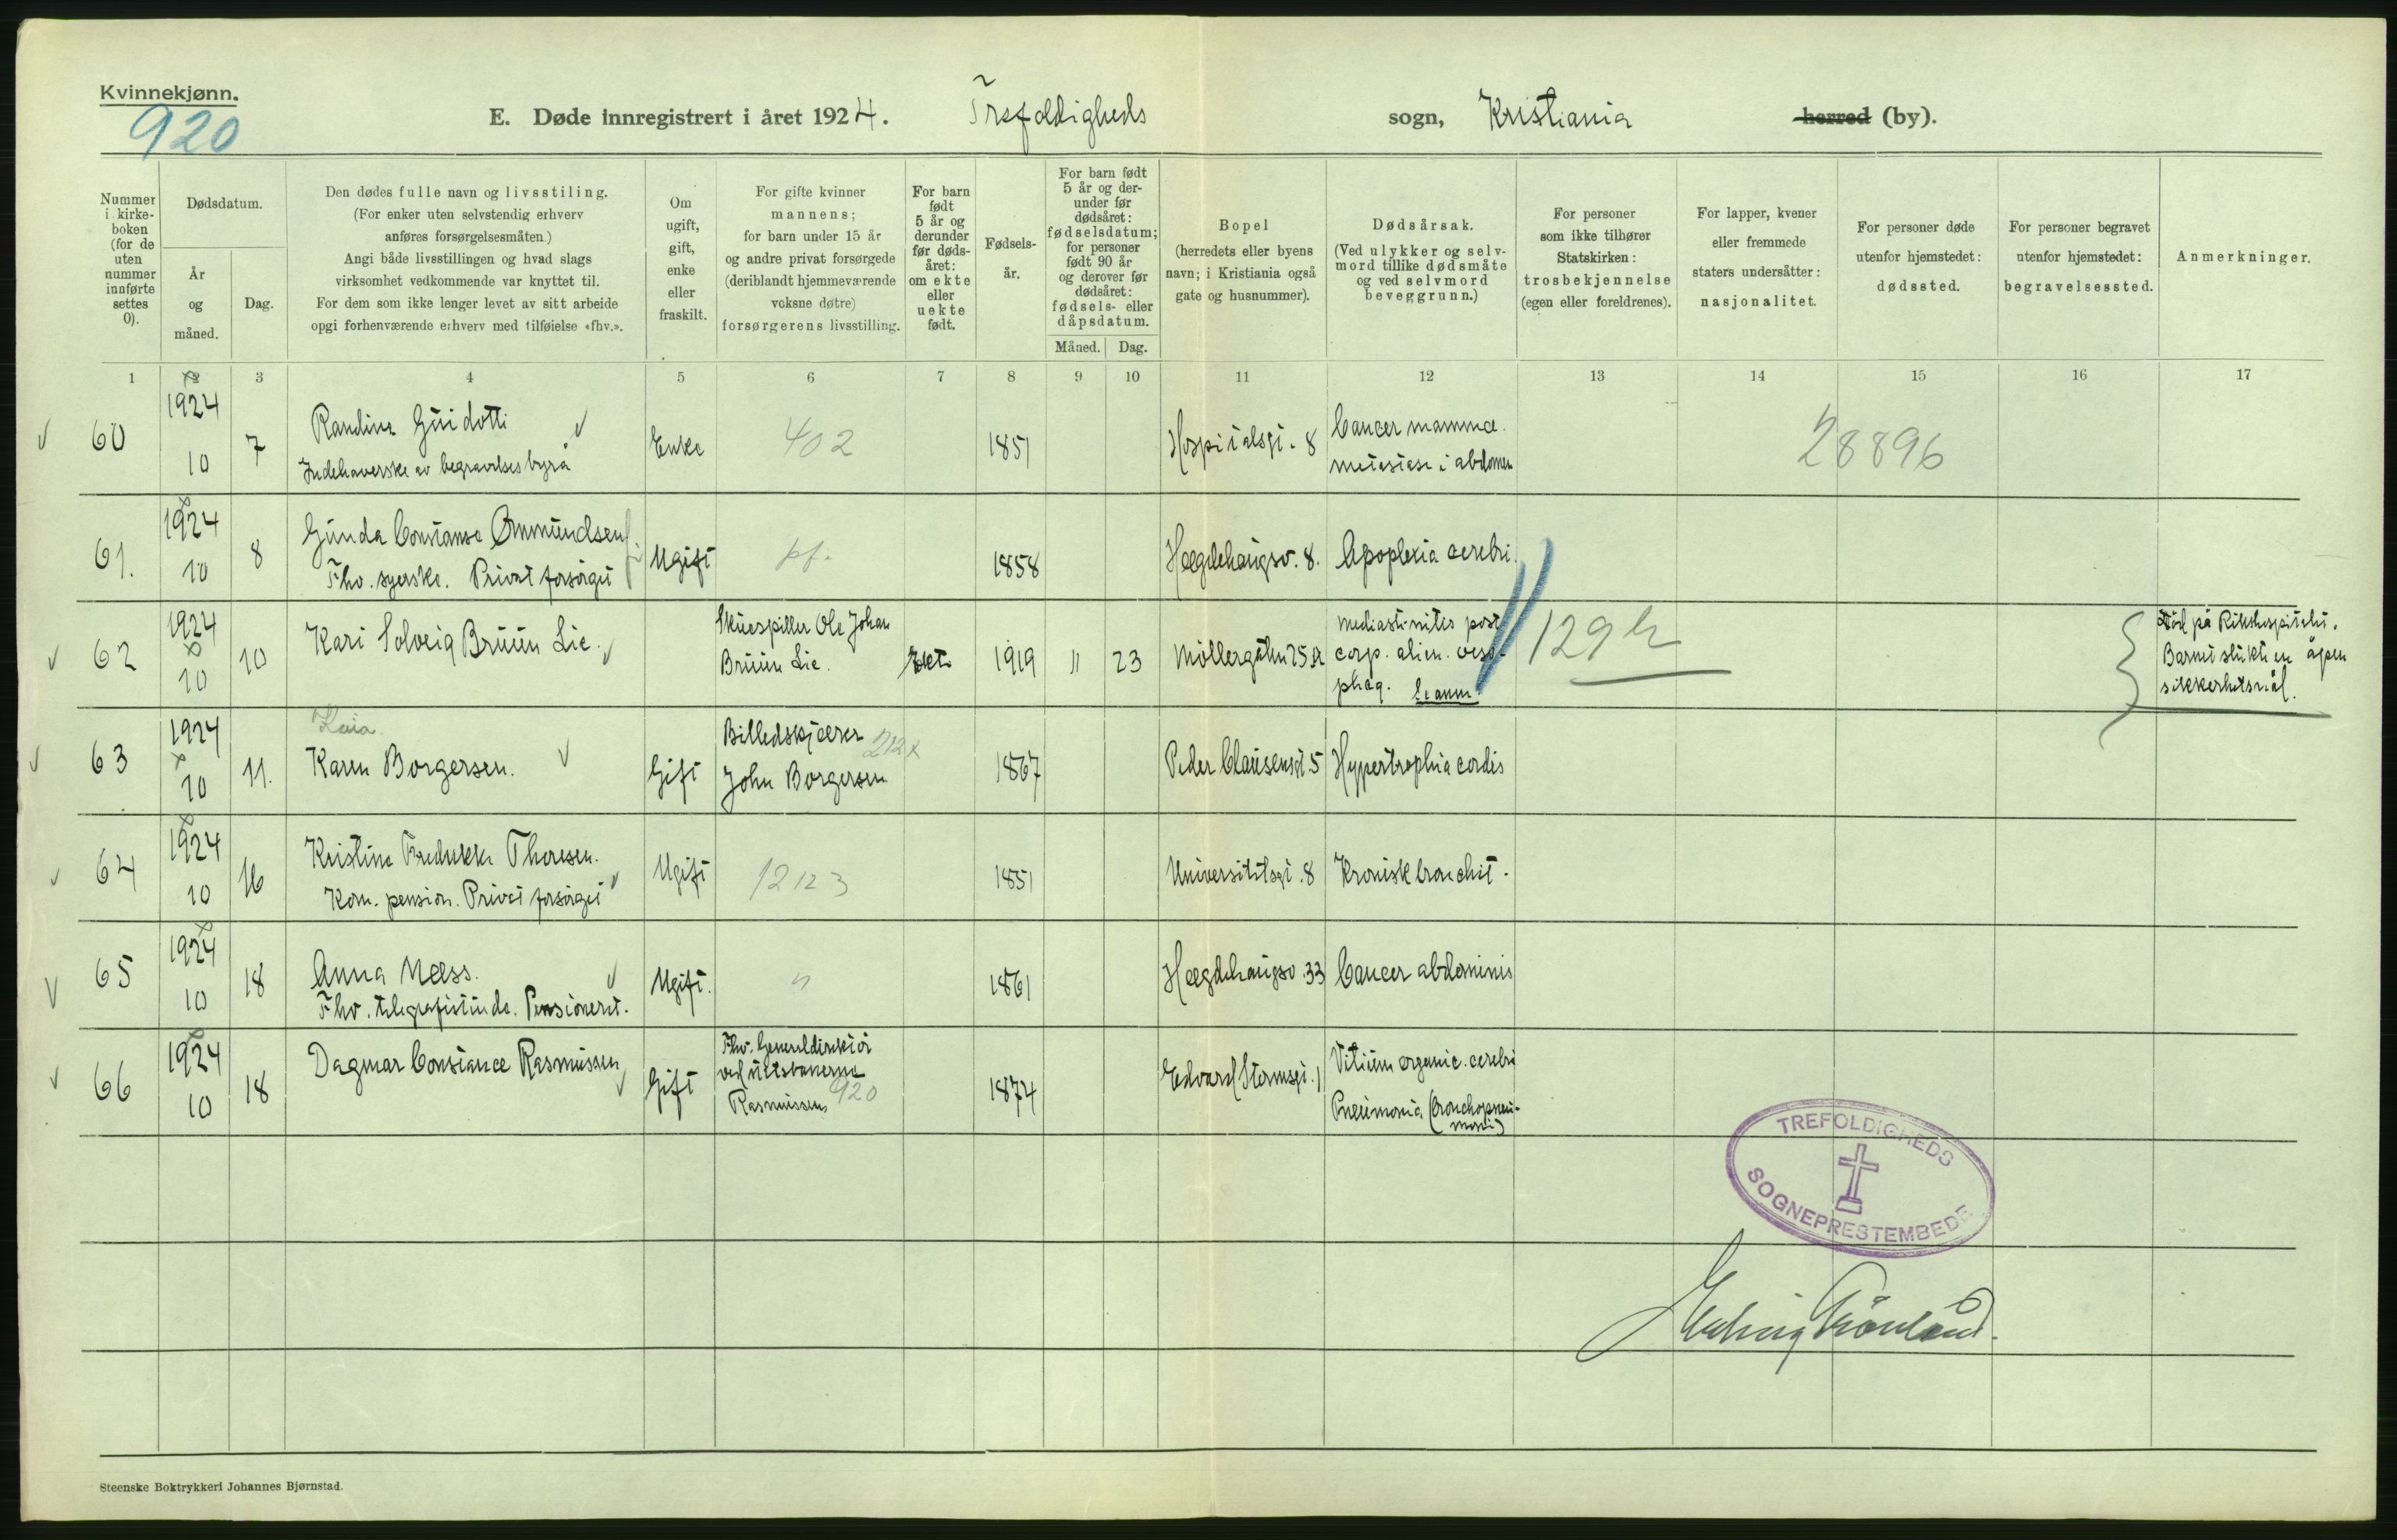 Kvinnekjønn.
920
E. Døde innregistrert i året 1924. Trefoldigheds sogn, Kristiania herred (by).
Nummer i kirke-boken (for de uten nummer innførte settes 0).
Dødsdatum.
År og måned.
Dag.
Den dødes fulle navn og livsstiling.
(For enker uten selvstendig erhverv
anføres forsørgelsesmåten.)
Angi både livsstillingen og hvad slags
virksomhet vedkommende var knyttet til.
For dem som ikke lenger levet av sitt arbeide
opgi forhenværende erhverv med tilføielse «fhv.».
Om
ugift,
gift,
enke
eller
fraskilt.
For gifte kvinner
mannens;
for barn under 15 år
og andre privat forsørgede
(deriblandt hjemmeværende
voksne døtre)
forsørgerens livsstilling.
For barn
født
5 år og
derunder
før døds-
året:
om ekte
eller
uekte
født.
Fødsels-
år.
For barn født
5 år og der-
under før
dødsåret:
fødselsdatum;
for personer
født 90 år
og derover før
dødsåret:
fødsels- eller
dåpsdatum.
Måned. Dag.
Bopel
(herredets eller byens
navn; i Kristiania også
gate og husnummer).
Dødsårsak.
(Ved ulykker og selv-
mord tillike dødsmåte
og ved selvmord
beveggrunn.)
For personer
som ikke tilhører
Statskirken:
trosbekjennelse
(egen eller foreldrenes).
For lapper, kvener
eller fremmede
staters undersåtter:
nasjonalitet.
For personer døde
utenfor hjemstedet:
dødssted.
For personer begravet
utenfor hjemstedet:
begravelsessted.
Anmerkninger.
1 2 3 4 5 6 7 8 9 10 11 12 13 14 15 16 17
60 1924 10 7 Randine Guidotti
Indehaverske av begravelsesbyrå
Enke 402 1851 Hospitalsgt. 8 Cancer mammae.
metastase i abdomen
28896
61. 1924 10 8 Gunda Constanse Ommundsen
Fhv. syerske. Privat forsörget
Ugift pf. 1858 Hægdehaugsv. 8. Apoplexia cerebri.
62 1924 10 10 Kari Solveig Bruun Lie.
Skuespiller Ole Johan
Bruun Lie.
Ekte 1919 11 23 Möllergatn 25 mediastinites post
corp. alien. oeso-
phag.
129
Död på Rikshospitalet.
Barnet slukte en åpen
sikkerhetsnål.
63 1924 10 11. Kaia
Karen Borgersen.
Gift Billedskjærer 212
John Borgersen
1867 Peder Clausensgt 5 Hypertrophia cordis
64 1924 10 16 Kristine Fredrikke Thoresen.
Kom. pension. Privat forsörget
Ugift 1212 3 1851 Universitetsgt. 8 Kronisk bronchit.
65 1924 10 18 Anna Næss.
Fhv. telegrafistinde. Pensioneret.
Ugift. " 1861 Hægdehaugsv. 33 Cancer abdominis
66 1924 10 18 Dagmar Constance Rasmussen
Gift Fhv. Generaldirektör
ved statsbanerne
Rasmussen 920
1874 Edvard Stormsgt. 1 Vitium organic. cerebri
Pneumonia (bronchopneu-
moni)
TREFOLDIGHEDS
SOGNEPRESTEMBEDE
Steenske Boktrykkeri Johannes Bjørnstad.